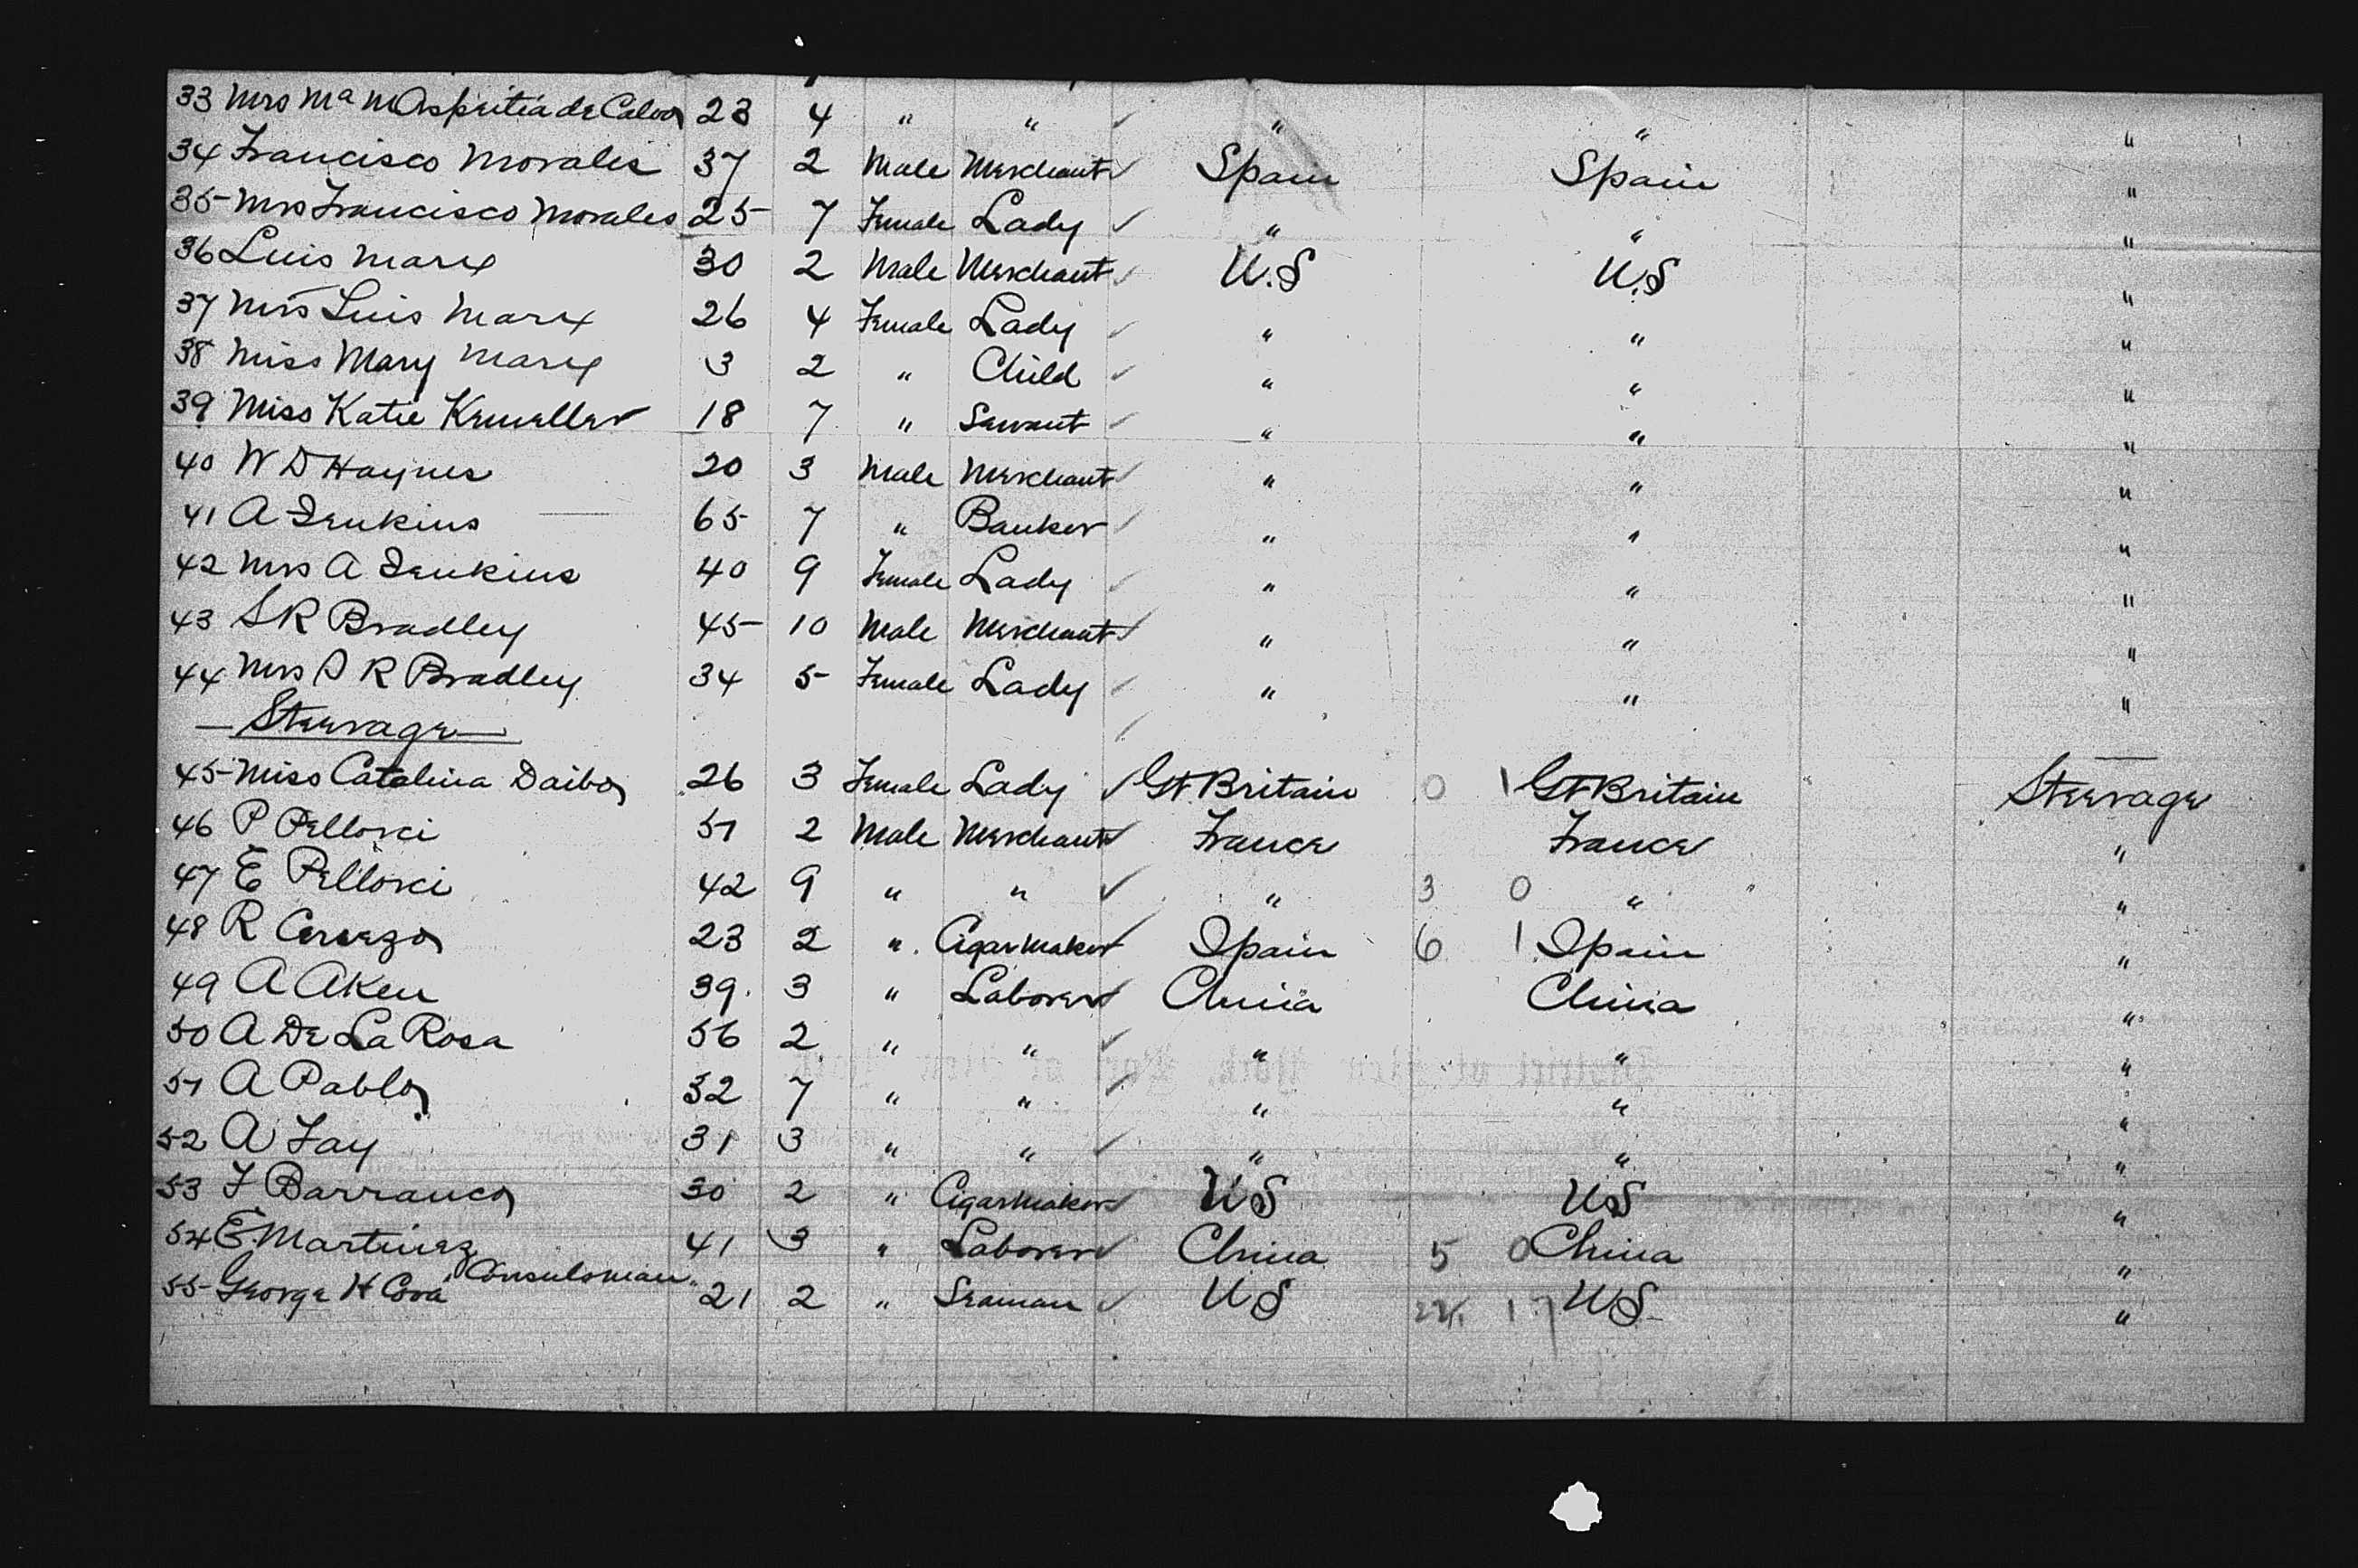 33 Mrs Ma M Aspeitia de Calvo 23 4 " " " " "
34 Francisco Morales 37 2 Male Merchant Spain Spain "
35 Mrs Francisco Morales 25 7 Female Lady " " "
36 Luis Marx 30 2 Male Merchant U.S U.S "
37 Mrs Luis Marx 26 4 Female Lady " " "
38 Miss Mary Marx 3 2 " Child " " "
39 Miss Katie 18 7 " Servant " " "
40 W D Haynes 20 3 Male Merchant " " "
41 A Jenkins 65 7 " Banker " " "
42 Mrs A Jenkins 40 9 Female Lady " " "
43 S R Bradley 45 10 Male Merchant " " "
44 Mrs S R Bradley 34 5 Female Lady " " "
Steerage
45 Miss Catalina Daibo 26 3 Female Lady Gt Britain 0 1 Gt Britain Steerage
46 P Pellorci 51 2 Male Merchant France France "
47 E Pellorci 42 9 " " " 3 0 " "
48 R Cerezo 23 2 " Cigarmaker Spain 6 1 Spain "
49 A Aken 39 3 " Laborer China China "
50 A De La Rosa 56 2 " " " " "
51 A Pablo 32 7 " " " " "
52 A Fay 31 3 " " " " "
53 F Barranco 30 2 " Cigarmaker US US "
54 E. Martinez 41 3 " Laborer China 5 0 China "
55 George H Cova Consulsman 21 2 " Seaman US 17 US "